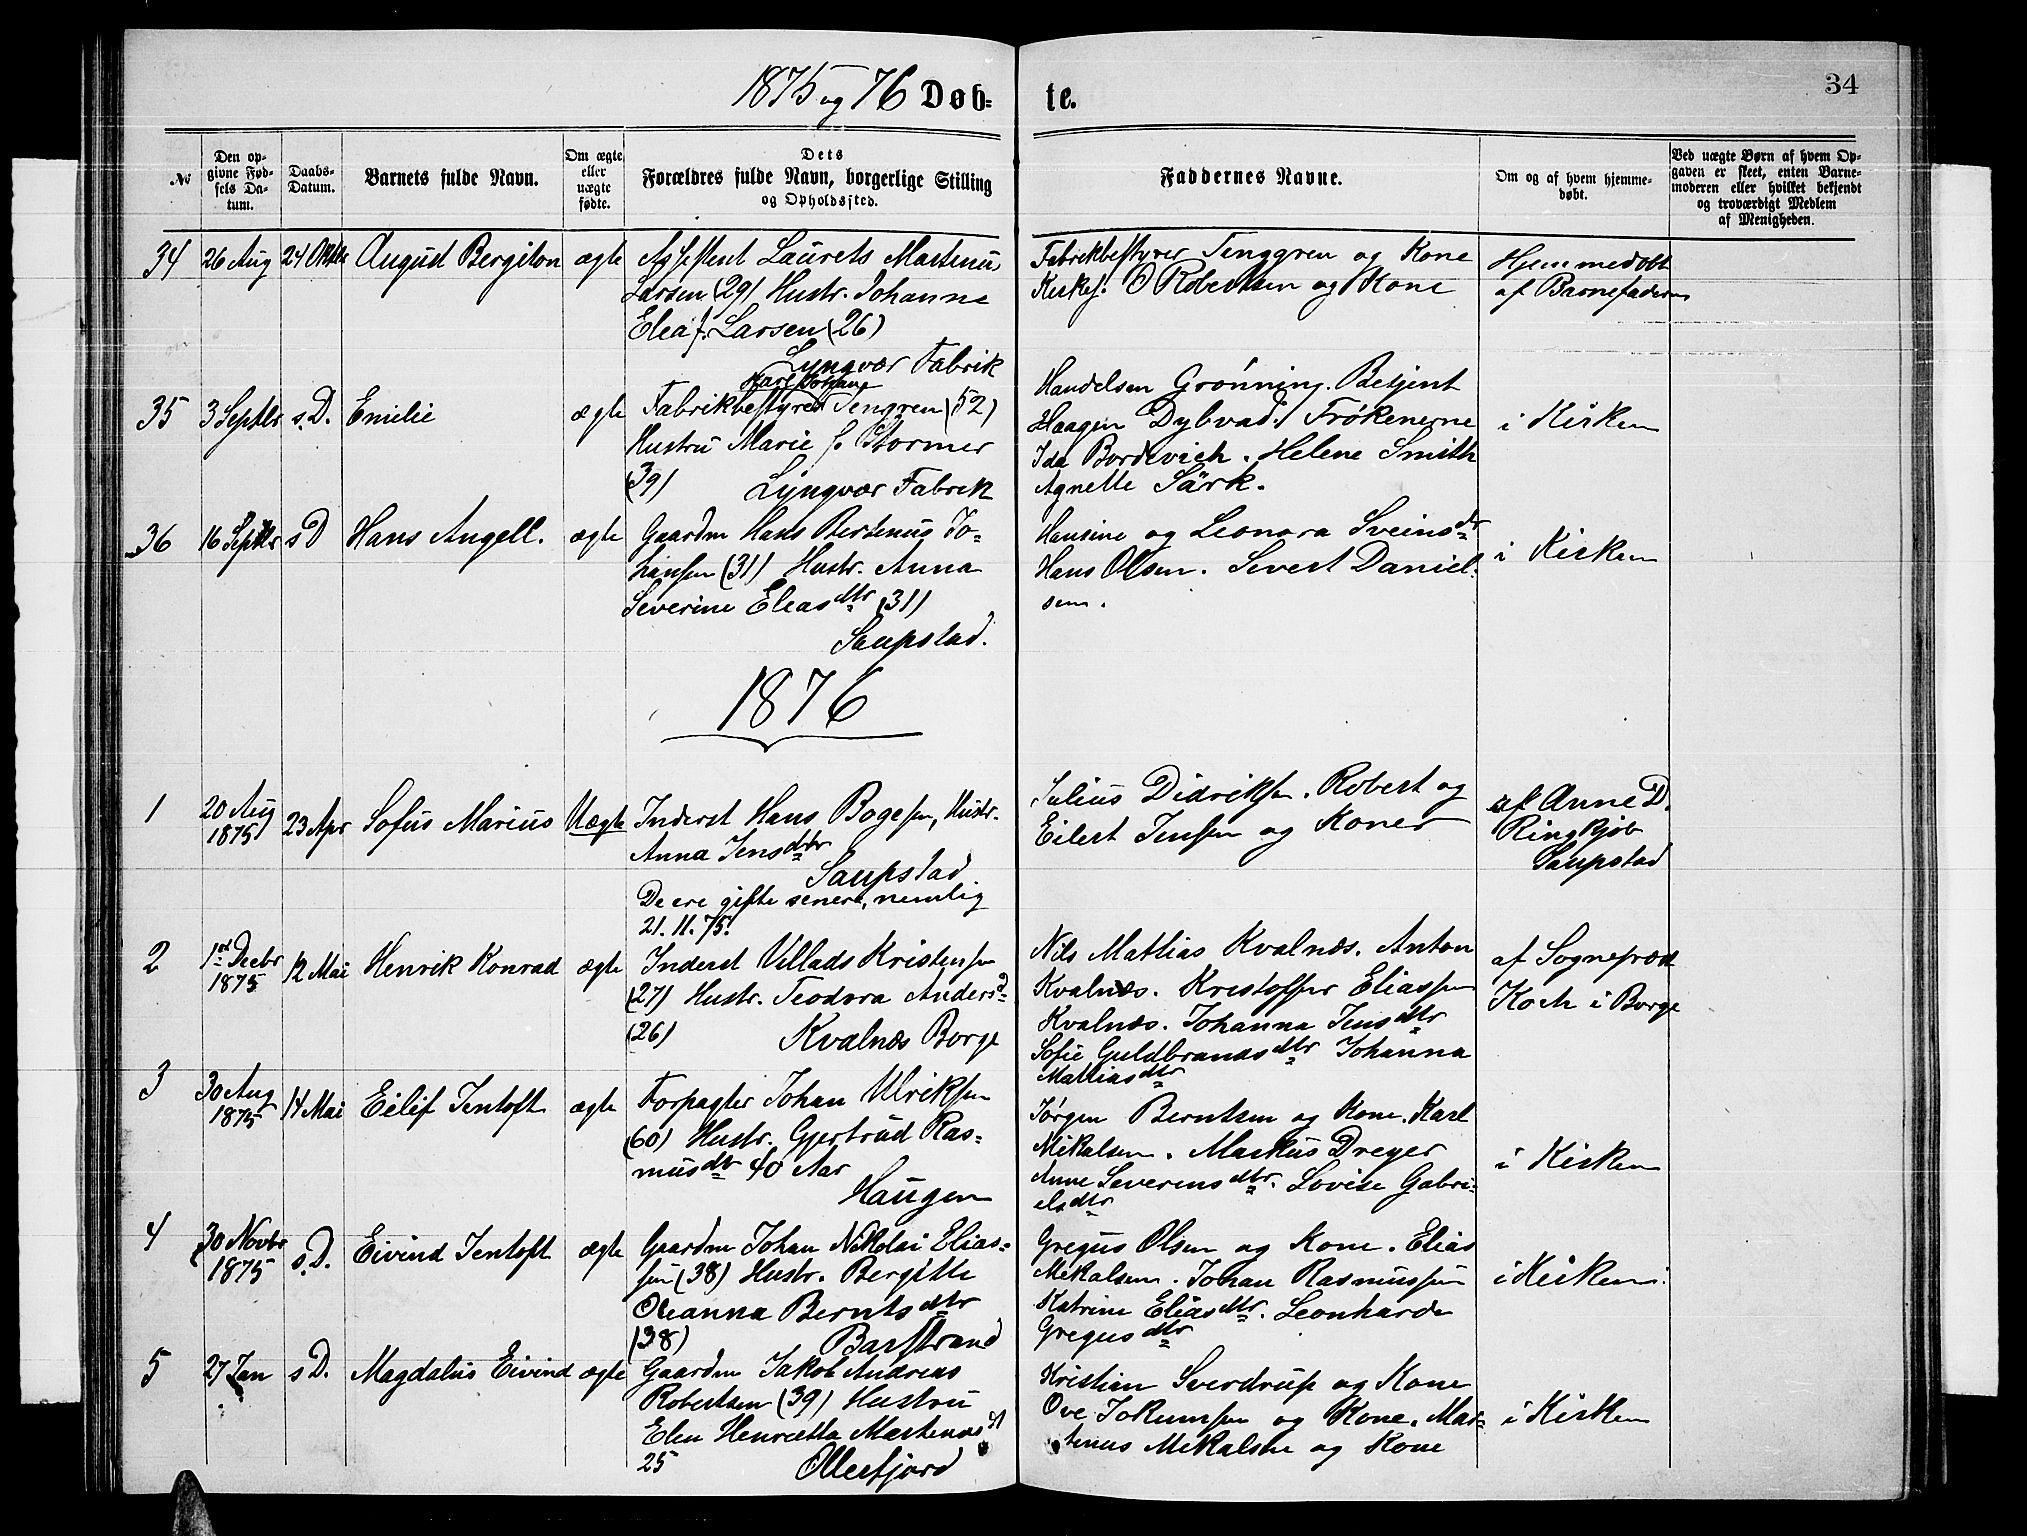 1875 og 76 Døb-
te.
34
No
Den op-
givne Fød-
sels Da-
tum.
Daabs-
Datum.
Barnets fulde Navn.
Om ægte
eller
uægte
fødte.
Dets
Forældres fulde Navn, borgerlige Stilling
og Opholdssted.
Faddernes Navne.
Om og af hvem hjemme-
døbt.
Ved uægte Børn af hvem Op-
gaven er skeet, enten Barne-
moderen eller hvilket bekjendt
og troværdigt Medlem
af Menigheden.
34
26 Aug
24 Oktbr
August Bergiton
ægte
Assistent Laurets Martenus
Larsen (29) Hustr. Johanne
Elea f. Larsen (26)
Lyngvær Fabrik
Fabrikbestyrer Tenggren og Kone
Kirkes. O Robertsen og Kone
Hjemmedøbt
af Barnefaderen
35
3 Septbr
s. D.
Emilie
ægte
Karl Johan
Fabrikbestyrer Tengren (52)
Hustru Marie f. Stormer
(39) Lyngvær Fabrik
Handelsm Grønning. Betjent
Haagen Dybvad. Frøkenerne
Ida Bordevich. Helene Smith
Agnette Särk.
i Kirken
36
16 Septbr
s D
Hans Angell.
ægte
Gaardm Hans Bertenus Jo-
hansen (31) Hustr. Anna
Severine Eleas dtr (31)
Saupstad.
Hansine og Leonora Sveins dtr
Hans Olsen. Severt Daniel-
sen.
i Kirken
1876
1
20 Aug
1875
23 Apr
Sofus Marius
Uægte
Inderst Hans Bogesen, Hustr.
Anna Jens dtr
Saupstad
De ere gifte senere, nemlig
21.11.75.
Julius Didriksen. Robert og
Eilert Jensen og Koner
af Anne D.
Ringkjøb
Saupstad
2
1st Decbr
1875
12 Mai
Henrik Konrad
ægte
Inderst Villads Kristensen
(27) Hustr. Teodora Anders d
(26) Kvalnæs Borge
Nils Mathias Kvalnæs. Anton
Kvalnæs. Kristoffer Eliassen
Kvalnæs. Johanna Jens dtr
Sofie Guldbrands dtr Johanna
Mattias dtr
af Sogneprest
Koch i Borge
3
30 Aug
1875
14 Mai
Eilif Jentoft
ægte
Forpagter Johan Ulriksen
(60) Hustr. Gjertrud Ras-
mus dtr 40 Aar
Haugen
Jørgen Berntsen og Kone. Karl
Mikalsen. Markus Dreyer
Anne Severens dtr. Lovise Gabri-
els dtr
i Kirken
4
30 Novbr
1875
s. D.
Eivind Jentoft
ægte
Gaardm Johan Nikolai Elias-
sen (38) Hustr. Bergitte
Oleanna Bernts dtr
(38) Barstrand
Gregus Olsen og Kone. Elias
Mikalsen. Johan Rasmussen
Katrine Elias dtr. Leonharde
Gregus dtr
i Kirken
5
27 Jan
s D.
Magdalus Eivind
ægte
Gaardm Jakob Andreas
Robertsen (39) Hustru
Elen Henrietta Martenus dt
25 Ollerfjord
Kristian Sverdrup og Kone
Ove Jokumsen og Kone. Mar-
tenus Mikalsen og Kone
i Kirken